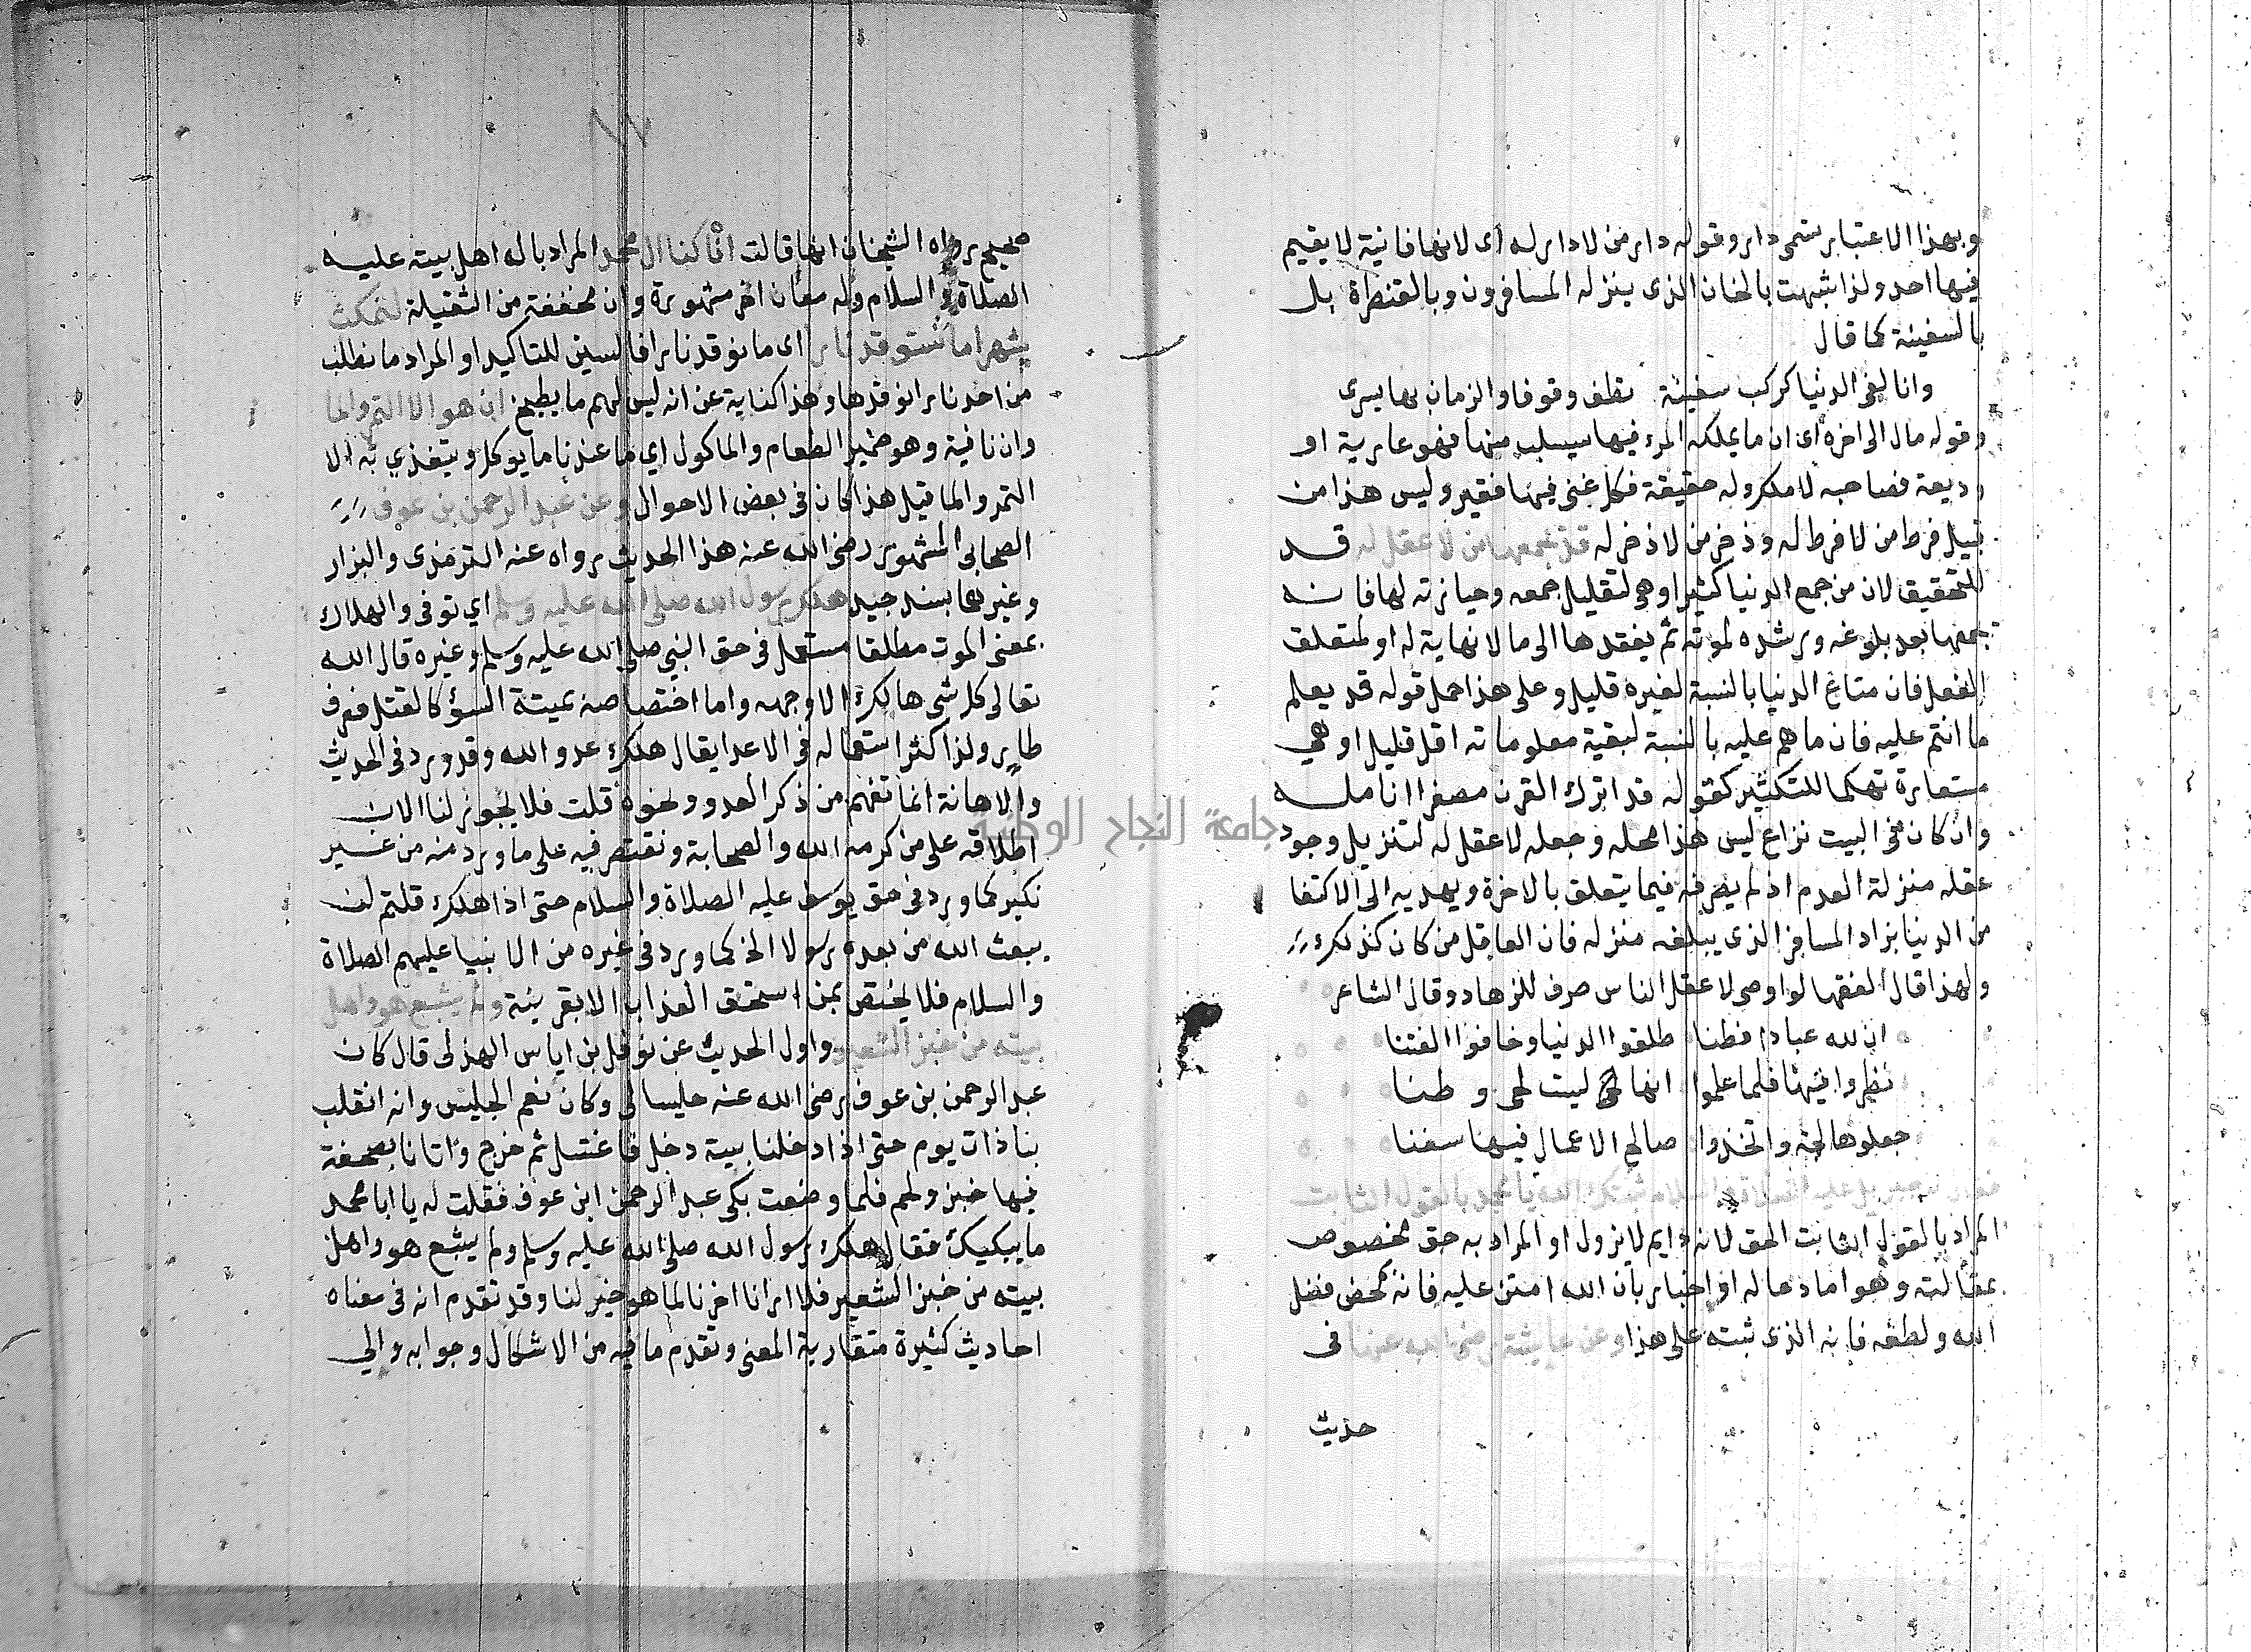 وبهذا الاعتبار سمى دار وقوله دار من لا دار له اى لانها فانية لا يقيم
فيها احد ولذا شبهت بالخان الذى ينزله المسافرون وبالقنطرة بل
بالسفينة كما قال
وانا لفى الدنيا كركب سفينة نظن وقوفا والزمان بها يسرى
وقوله مال الى اخره اى ان ما يملكه المرء فيها سيسلب منها فهو عارية او
وديعة فصاحبه لا ملك له حقيقة فكل غنى فيها فقير وليس هذا من
قبيل فرط من لا فرط له وذخر من لا ذخر له قد يجمعها من لا عقل له قد
للتحقيق لان من جمع الدنيا كثير او هى لتقليل جمعه وحيازته لها فانه
يجمعها بعد بلوغه ورشده لموته ثم يفقدها الى ما لا نهاية له او لمتعلق
الفعل فان متاع الدنيا بالنسبة لغيره قليل وعلى هذا حمل قوله قد يعلم
ما انتم عليه فان ما هم عليه بالنسبة لبقية معلوماته اقل قليل او هى
مستعارة تهكما للتكثير كقوله قد اترك القرن مصفرا انامله
وان كان فى البيت نزاع ليس هذا محله وجعله لا عقل له لتنزيل وجود
عقله منزلة العدم اذ لم يصرفه فيما يتعلق بالاخرة ويهديه الى الاكتفا
من الدنيا بزاد المسافر الذى يبلغه منزله فان العاقل من كان كذلك
ولهذا قال الفقها لو اوصى لا عقل الناس صرف للزهاد وقال الشاعر
ان لله عبادا فطنا طلقوا الدنيا وخافوا الفتنا
نظروا فيها فلما علموا انها ليست لحى وطنا
جعلوها لجة واتخذوا صالح الاعمال فيها سفنا
فقال له جبريل عليه الصلاة والسلام ثبتك الله يا محمد بالقول الثابت
المراد بالقول الثابت الحق لانه دايم لا يزول او المراد به حق مخصوص
بمقالته وهو اما دعا له او اخبار بان الله امتن عليه فانه محض فضل
الله ولطفه فانه الذى ثبته على هذا وعن عايشة رضى الله عنها فى
حديث
صحيح رواه الشيخان انها قالت انا كنا ال محمد المراد باله اهل بيته عليه
الصلاة والسلام وله معان اخر مشهورة وان مخففة من الثقيلة لنمكث
شهرا ما نستوقد نارا اى ما نوقد نارا فالسين للتاكيد او المراد ما نطلب
من احد نارا نوقدها وهذا كناية عن انه ليس لهم ما يطبخ ان هو الا التمر والما
وان نافية وهو ضمير الطعام والماكول اي ما عندنا ما يوكل ويتغذي به الا
التمر والما قيل هذا كان فى بعض الاحوال وعن عبد الرحمن بن عوف
الصحابى المشهور رضى الله عنه هذا الحديث رواه عنه الترمذى والبزار
وغيرهما بسند جيد هلك رسول الله صلى الله عليه وسلم اي توفى والهلاك
بمعنى الموت مطلقا مستعمل فى حق النبي صلى الله عليه وسلم وغيره قال الله
تعالى كل شى هالك الا وجهه واما اختصاصه بميتة السؤ كالقتل فعرف
طاير ولذا كثر استعماله فى الاعدا يقال هلك عدو الله وقد ورد فى الحديث
والاهانة انما تفهم من ذكر العدو ونحوه قلت فلا يجوز لنا الان
اطلاقه على من كرمه الله والصحابة ونقتصر فيه على ما ورد منه من غير
نكير كما ورد فى حق يوسف عليه الصلاة والسلام حتى اذا هلك قلتم لن
يبعث الله من بعده رسولا الخ كما ورد فى غيره من الانبيا عليهم الصلاة
والسلام فلا يختص بمن استحق العذاب الا بقرينة ولم يشبع هو واهل
بيته من خبز الشعير واول الحديث عن نوفل بن اياس الهذلى قال كان
عبد الرحمن بن عوف رضى الله عنه جليسا لى وكان نعم الجليس وانه انقلب
بنا ذات يوم حتى اذا دخلنا بيته دخل فاغتسل ثم خرج واتانا بصحفة
فيها خبز ولحم فلما وضعت بكى عبد الرحمن ابن عوف فقلت له يا ابا محمد
ما يبكيك فقال هلك رسول الله صلى الله عليه وسلم ولم يشبع هو واهل
بيته من خبز الشعير فلا ارانا اخرنا لما هو خير لنا وقد تقدم انه فى معناه
احاديث كثيرة متقاربة المعنى وتقدم ما فيه من الاشكال وجوابه والي
جامعة النجاح الوطنية